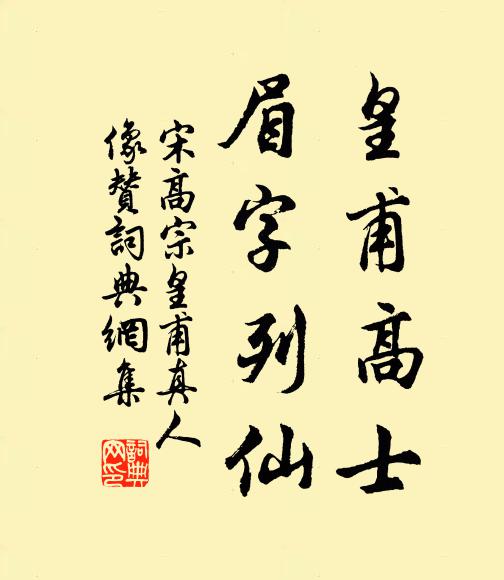 皇甫高士
眉字列仙
宋高宗皇甫真人
像贊詞典網集
詞典網印